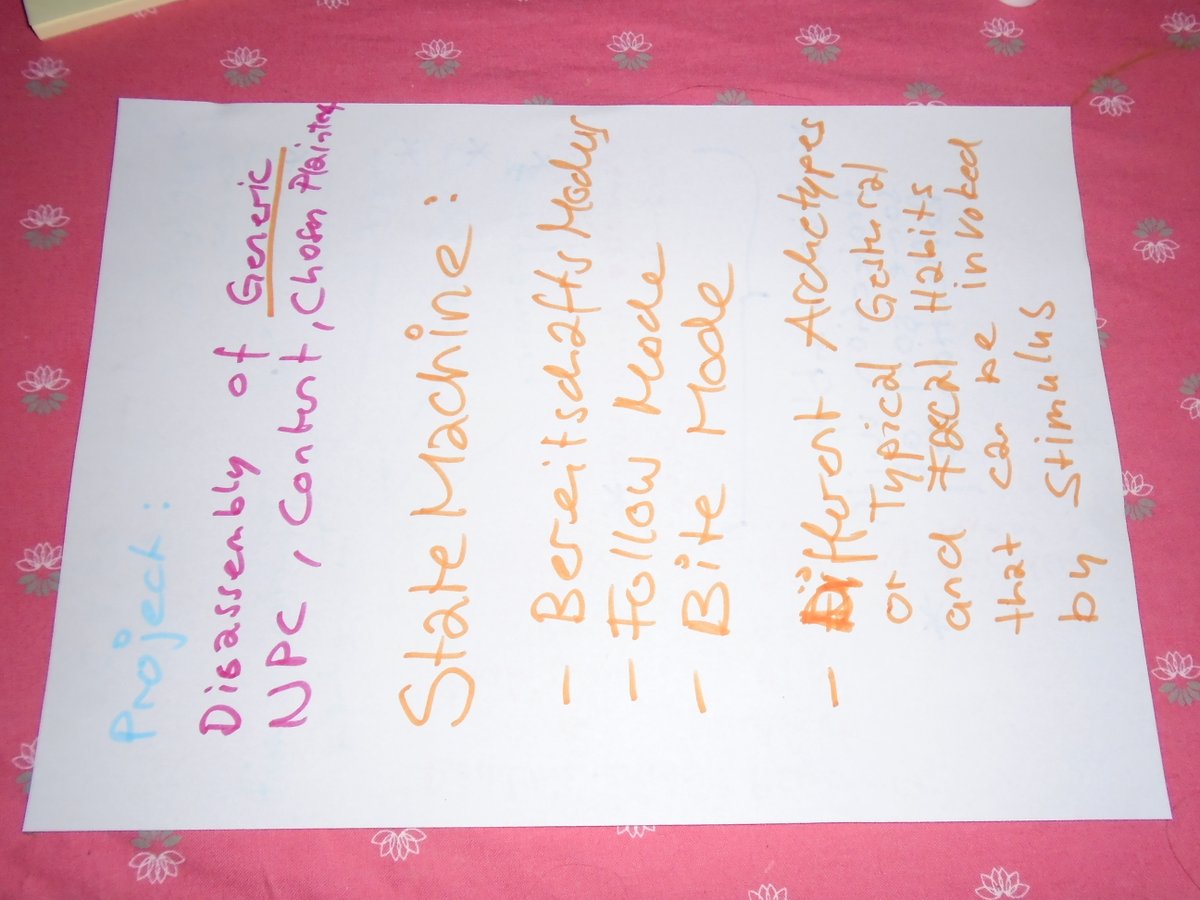 Project:
Disassembly of Generic
NPC, Content, Chosen Plaintext
StateMachine:
- BereitschaftsModus
- Follow Mode
- Bite Mode
- Different Archetypes
or Typical Gestural
and Facial Habits
that can be invoked
by Stimulus